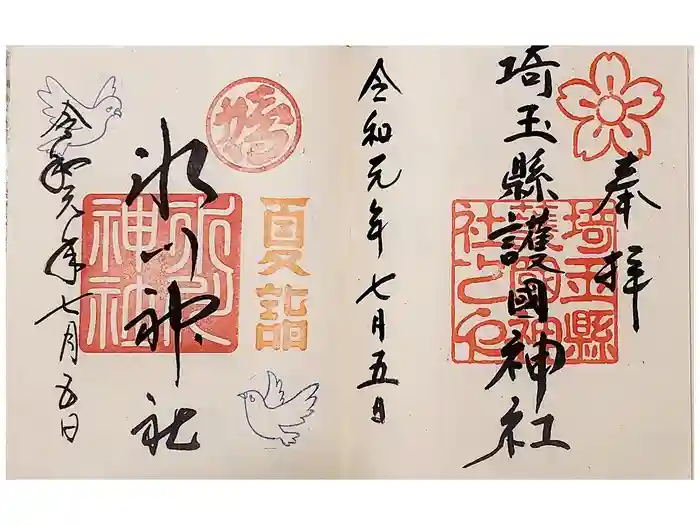 奉拝
埼玉縣護國神社
埼玉縣
護國神
社之印
令和元年七月五日
夏詣
氷川神社
氷川
神社
令和元年七月五日